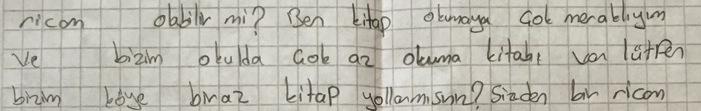 ricam olabilir mi? Ben kitap okumaya çok meraklıyım
ve bizim okulda çok az okuma kitabı var lütfen
bizim köye biraz kitap yollarmısın? Sizden bir ricam